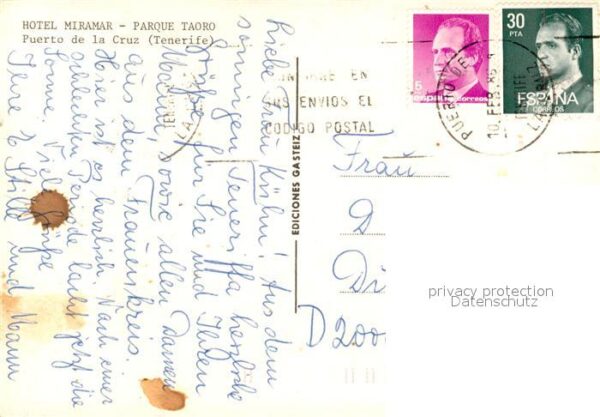 HOTEL MIRAMAR - PARQUE TAORO
Puerto de la Cruz (Tenerife)
Liebe Frau Kühn! Aus dem
sonnigen Teneriffa herzliche
Grüße für Sie und Ihren
Mann, sowie allen Damen
aus dem Frauenkreis.
Heut es herrlich. Nach einer
Periode lacht jetzt die
Sonne. Viele Grüße
Ihre
und Mann
EDICIONES GASTEIZ
EN
SUS ENVIOS EL
CODIGO POSTAL
5
españa correos
30
PTA
ESPAÑA
CORREOS
PUERTO DE
10 FEB
Frau
D
Di
D 2000
privacy protection
Datenschutz